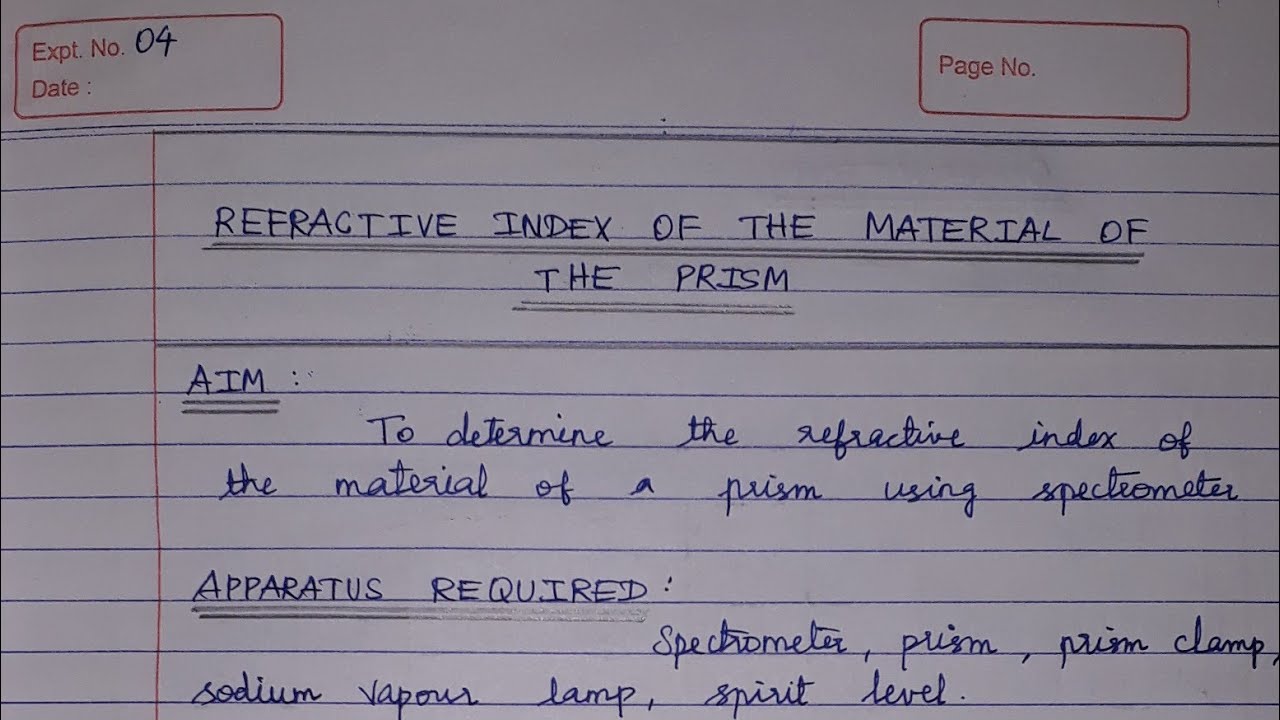 Expt. No. 04
Date :
Page No.
REFRACTIVE INDEX OF THE MATERIAL OF
THE PRISM
AIM :
To determine the refractive index of
the material of a prism using spectrometer
APPARATUS REQUIRED :
Spectrometer, prism, prism clamp,
sodium vapour lamp, spirit level.